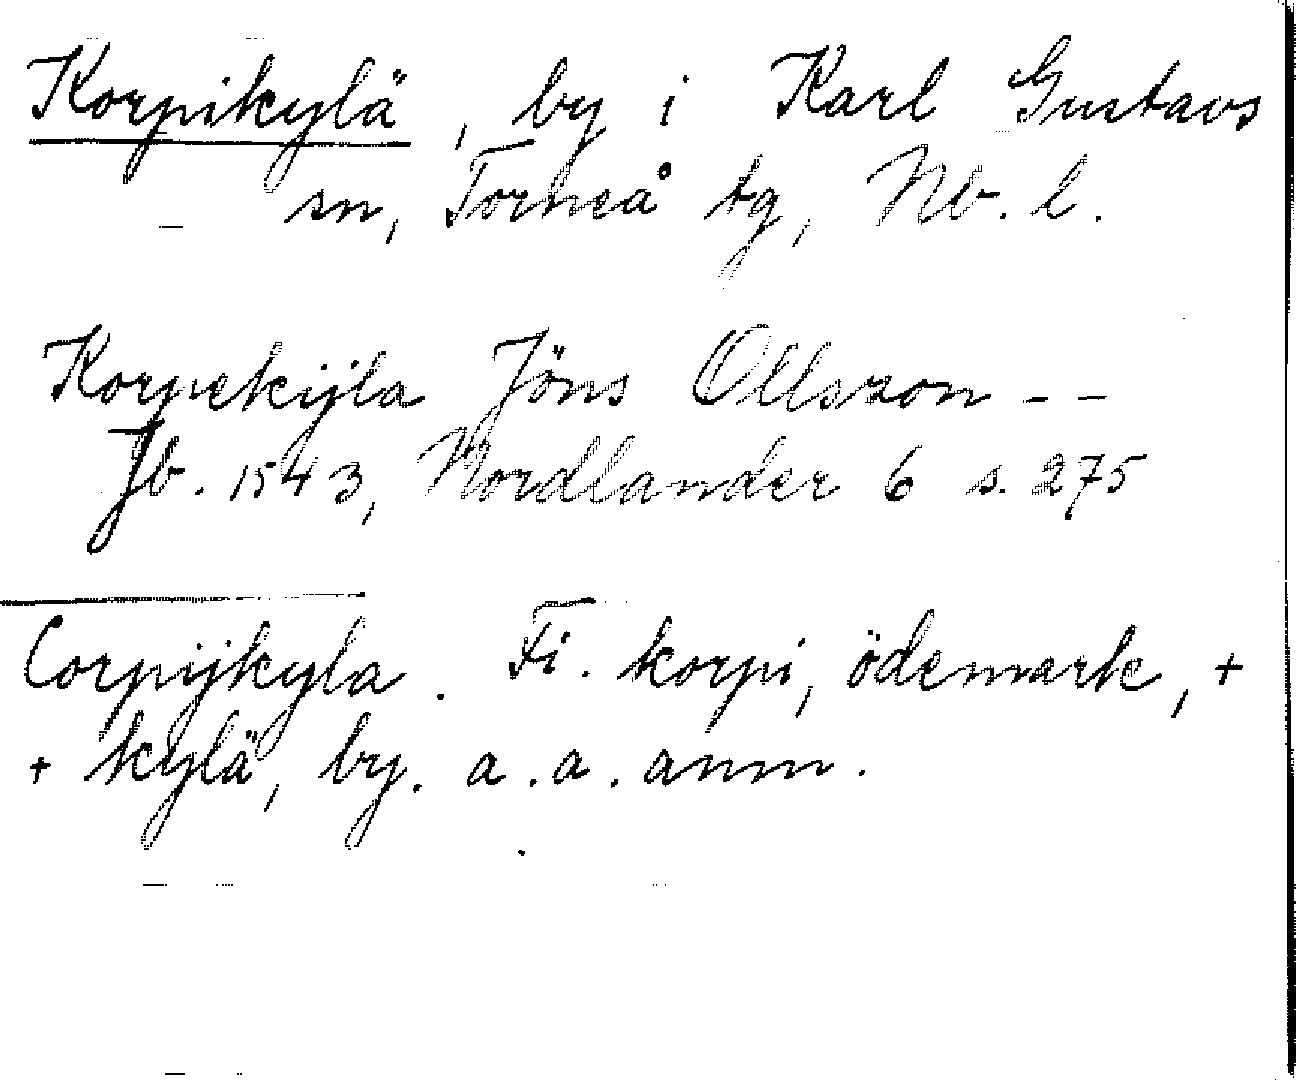 Korpikylä, by i Karl Gustavs
sn, Torneå tg, Nb. l.
Korpekijla Jöns Ollsson - -
Jb. 1543, Nordlander 6 s. 275
Corpijkyla. Fi. korpi, ödemark, +
+ kylä, by. a. a. anm.